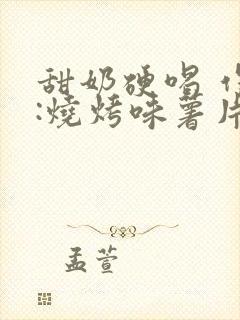 甜奶硬喝
:燒烤味薯片
孟萱